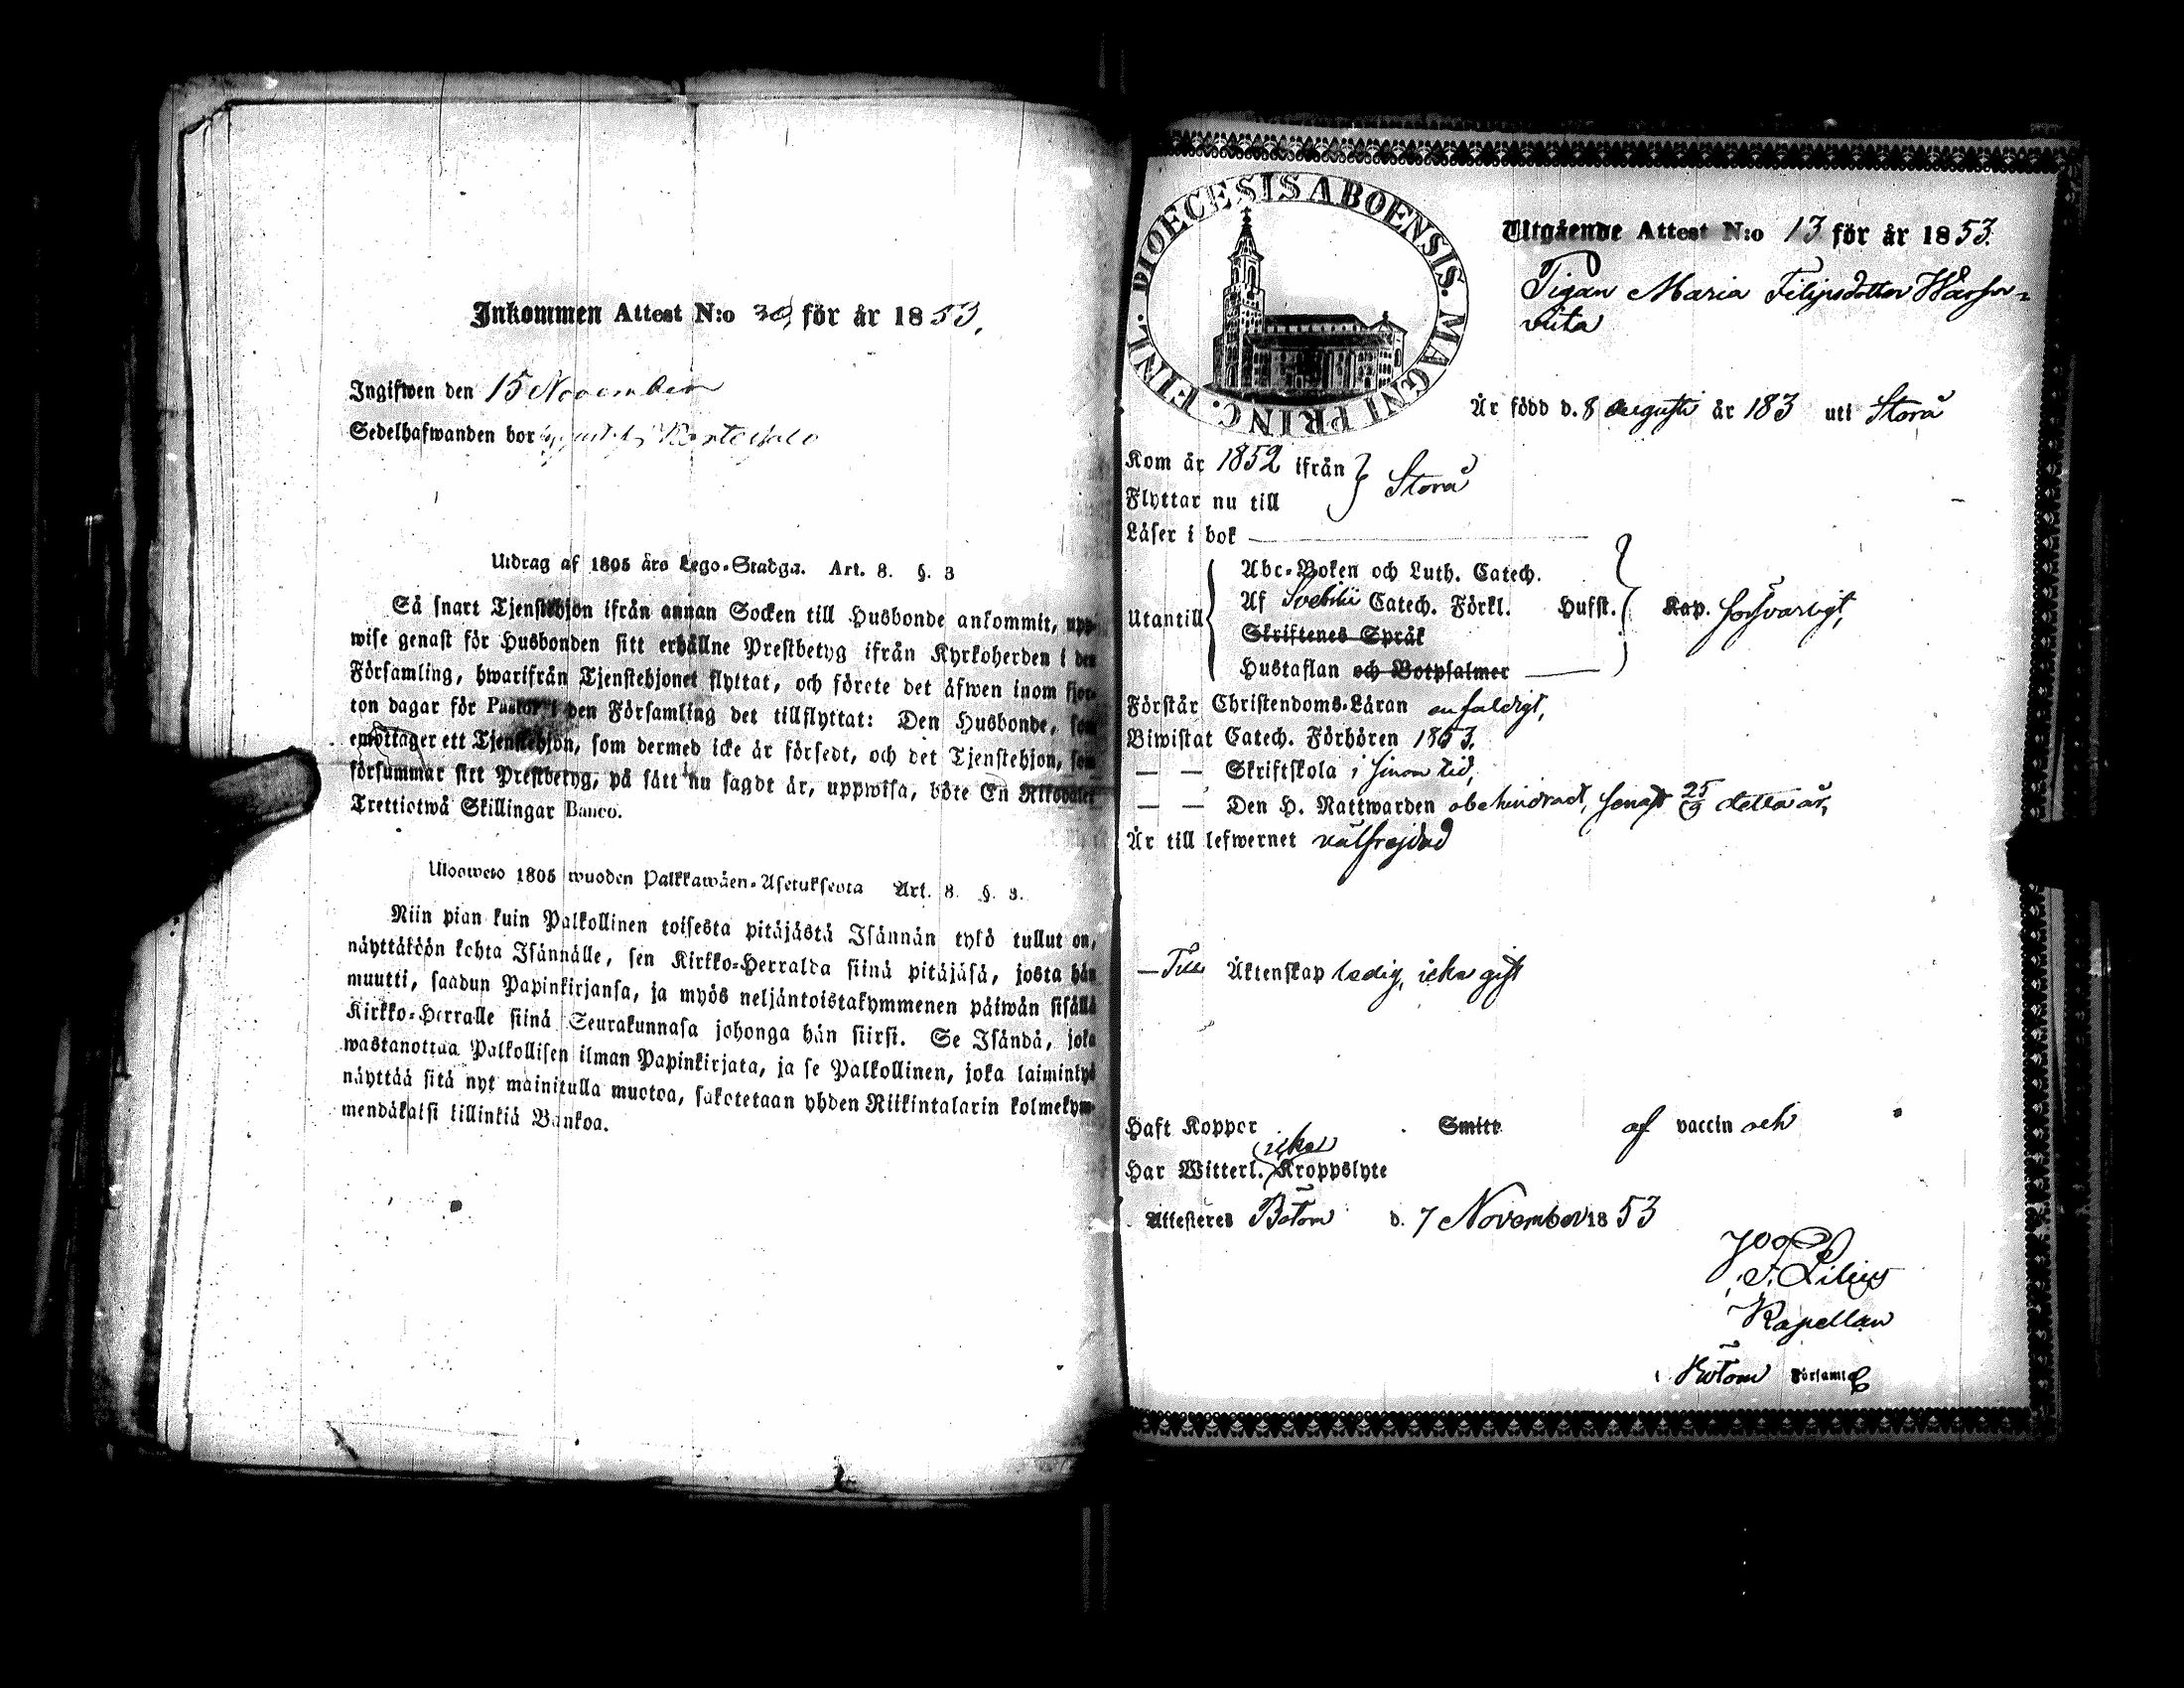 Inkommen Attest N:o för år 1853.
Ingifwen den 15 November
Sedelhafwanden bor
Utdrag af 1805 års Lego-Stadga. Art. 8. §. 3
Så snart Tjenstehjon ifrån annan Socken till Husbonde ankommit, upp-
wise genast för Husbonden sitt erhållne Prestbetyg ifrån Kyrkoherden i den
Församling, hwarifrån Tjenstehjonet flyttat, och förete det äfwen inom fjor-
ton dagar för Pastor i den Församling det tillflyttat: Den Husbonde, som
emottager ett Tjenstehjon, som dermed icke är försedt, och det Tjenstehjon, som
försummar sitt Prestbetyg, på sätt nu sagdt är, uppwisa, böte En Riksdaler
Trettiotwå Skillingar Banco.
Ulosweto 1805 wuoden Palkkawäen-Asetuksesta Art. 8. §. 3.
Niin pian kuin Palkollinen toisesta pitäjästä Isännän tykö tullut on,
näyttäköön kohta Isännälle, sen Kirkko-Herralda siinä pitäjäsä, josta hän
muutti, saadun Papinkirjansa, ja myös neljäntoistakymmenen päiwän sisällä
Kirkko-Herralle siinä Seurakunnasa johonga hän siirsi. Se Isändä, joka
wastanottaa Palkollisen ilman Papinkirjata, ja se Palkollinen, joka laiminlyö
näyttää sitä nyt mainitulla muotoa, sakotetaan yhden Riikintalarin kolmekym-
mendäkaksi killinkiä Bankoa.
DIOECESIS ABOENSIS. MAGNI PRINC. FINL.
Utgående Attest N:o 13 för år 1853.
Pigan Maria Filipsdotter
Är född d. 8 Augusti år 183 uti Storå
Kom år 1852 ifrån } Storå
Flyttar nu till
Läser i bok
Abc-Boken och Luth. Catech.
Utantill Af Svebilii Catech. Förkl. Hufst. Kap. försvarligt,
Skriftenes Språk
Hustaflan och Botpsalmer
Förstår Christendoms-Läran enfaldigt,
Biwistat Catech. Förhören 1853.
— — Skriftskola i sinom tid,
— — Den H. Nattwarden obehindrad, senast 25/9 detta år,
Är till lefwernet välfrejdad
— Till Äktenskap ledig, icke gift
Haft Koppor Smitt af vaccin och
icke
Har Witterl. Kroppslyte
Attesteres Bötom d. 7 November 1853
Lilius
Kapellan
i Bötom Församl